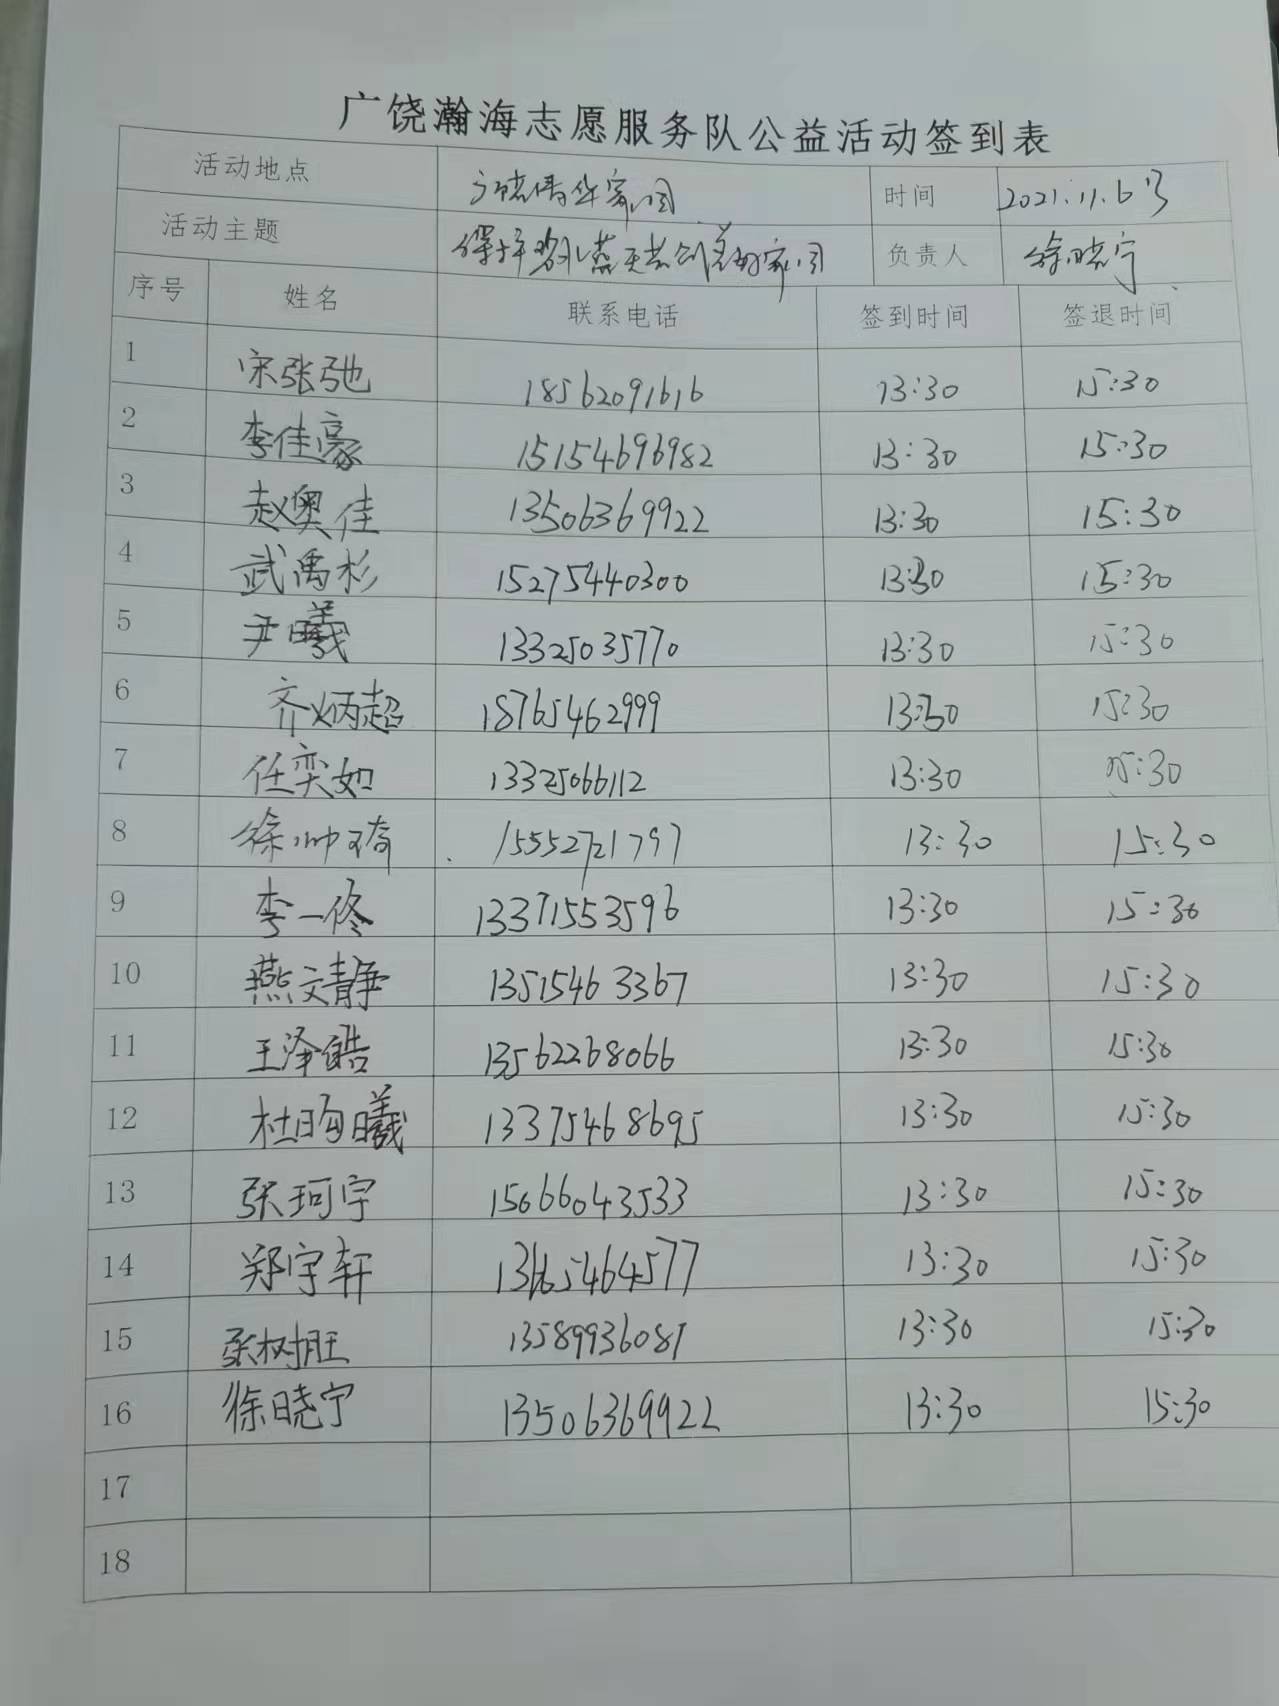 广饶瀚海志愿服务队公益活动签到表
活动地点 广饶清华家园 时间 2021.11.6号
活动主题 家园 负责人 徐晓宁
序号 姓名 联系电话 签到时间 签退时间
1 宋张弛 18562091616 13:30 15:30
2 李佳豪 15154696982 13:30 15:30
3 赵奥佳 13506369922 13:30 15:30
4 武禹杉 15275440300 13:30 15:30
5 尹曦 13325035770 13:30 15:30
6 齐炳超 18765462999 13:30 15:30
7 任奕如 13325066112 13:30 15:30
8 徐帅琦 15552721797 13:30 15:30
9 李一佟 13371553596 13:30 15:30
10 燕文静 13515463367 13:30 15:30
11 王泽皓 13562268066 13:30 15:30
12 杜昫曦 13375468695 13:30 15:30
13 张珂宇 15066043533 13:30 15:30
14 郑宇轩 13665464577 13:30 15:30
15 张树旺 13589936081 13:30 15:30
16 徐晓宁 13506369922 13:30 15:30
17
18